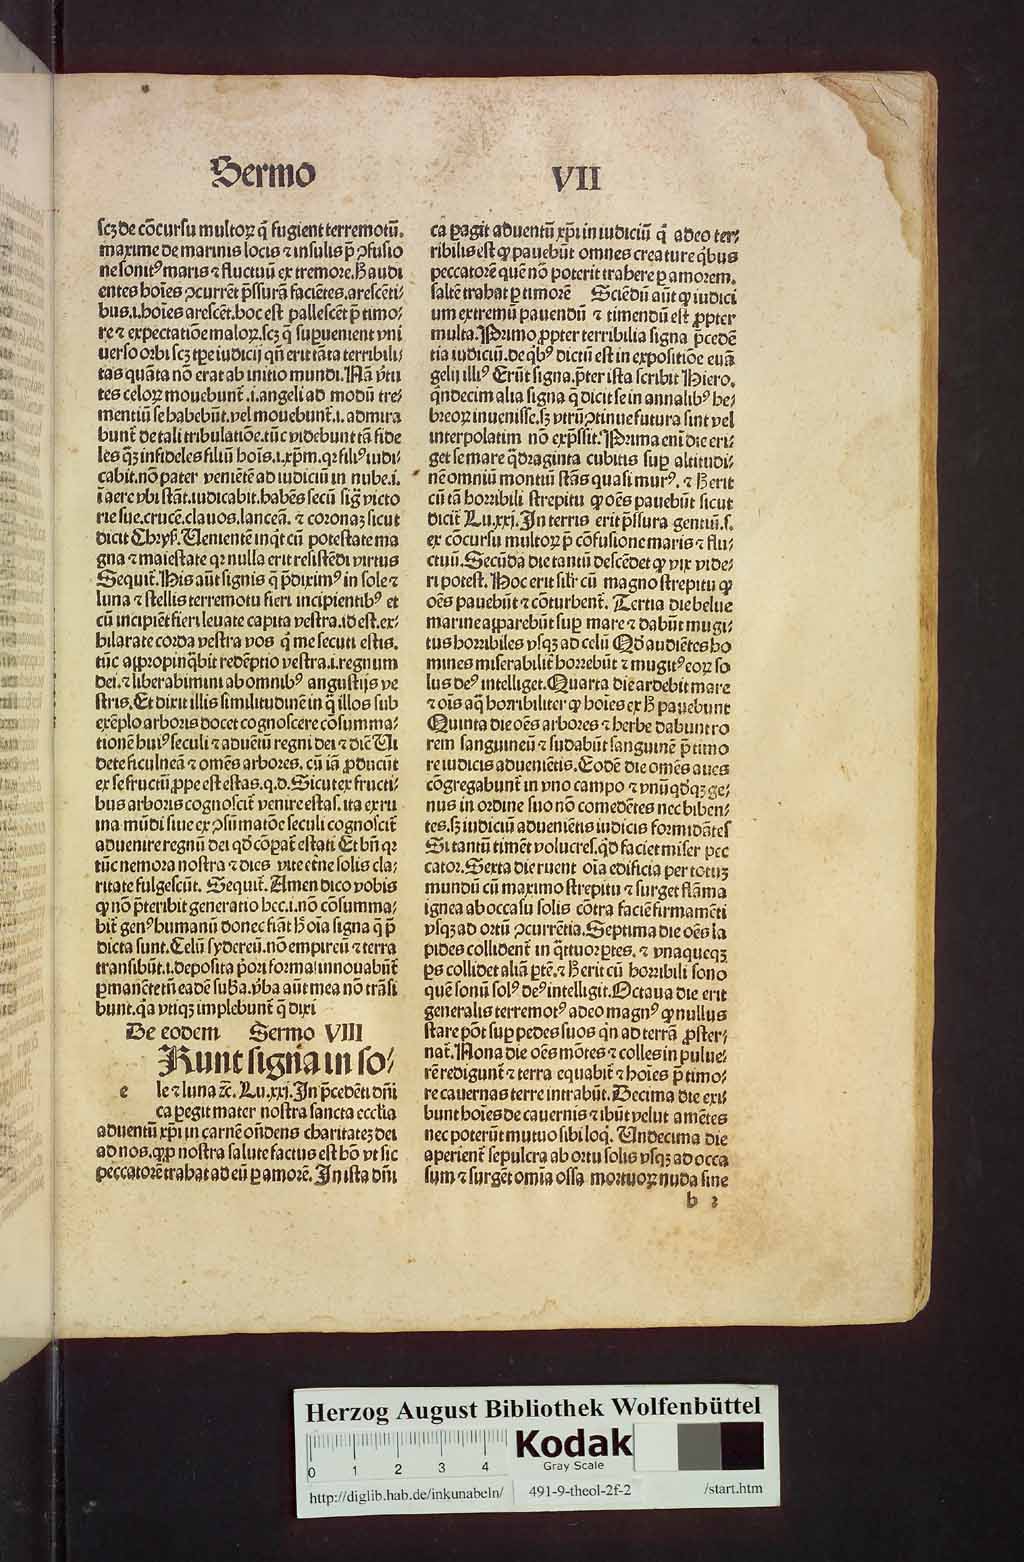 Sermo VII
scꝫ de cōcursu multoꝝ q̄ fugient terremotū.
maxime de marinis locis ⁊ insulis p̄ ↄfusio
ne sonitꝰ maris ⁊ fluctuū ex tremore. H̄ audi
entes hoīes ↄcurrēt p̄ssurā faciētes. arescēti⸗
bus .i. hoīes arescēt. hoc est pallescēt p̄ timo⸗
re ⁊ expectatiōe maloꝝ. scꝫ q̄ supuenient vni
uerso orbi scꝫ tp̄e iudicij qn̄ erit tāta terribili⸗
tas quāta nō erat ab initio mundi. Nā v̓tu
tes celoꝝ mouebunt᷑ .i. angeli ad modū tre⸗
mentiū se habebūt. vel mouebunt᷑ .i. admira
bunt᷑ de tali tribulatiōe. tūc videbunt tā fide
les q̄ꝫ infideles filiū hoīs .i. xp̄m. qꝛ filiꝰ iudi⸗
cabit. nō pater venietē ad iudiciū in nube .i.
ī aere vbi stāt. iudicabit. habēs secū sig̅ victo
rie sue. crucē. clauos. lanceā. ⁊ coronaꝫ sicut
dicit Chrys̄. Uenientē inq̇t cū potestate ma
gna ⁊ maiestate qꝛ nulla erit resistēdi virtus
Sequit᷑. His aūt signis q̄ p̄diximꝰ in sole ⁊
luna ⁊ stellis terremotu fieri incipientibꝰ et
cū incipiēt fieri leuate capita vestra. id est. ex⸗
hilarate corda vestra vos q̇ me secuti estis.
tūc appropinq̄bit redēptio vestra .i. regnum
dei. ⁊ liberabimini ab omnibꝰ angustijs ve
stris. Et dixit illis similitudinē in q̄ illos sub
exēplo arboris docet cognoscere cōsumma⸗
tionē huiꝰ seculi ⁊ aduētū regni dei ⁊ dic̄ Ui
dete ficulneā ⁊ omēs arbores. cū iā ꝓducūt
ex se fructū ꝓpe est estas. q.d. Sicut ex fructi⸗
bus arboris cognoscit᷑ venire estas. ita ex ru
ina mūdi siue ex ↄsūmatōe seculi cognoscit᷑
aduenire regnū dei qd̄ cōpat᷑ estati Et bn̄ qꝛ
tūc nemora nostra ⁊ dies vite etn̄e solis cla⸗
ritate fulgescūt. Sequit᷑. Amen dico vobis
ꝙ nō p̄teribit generatio hec .i. nō cōsumma⸗
bit᷑ genꝰ humanū donec fiāt h̄ oīa signa q̄ p̄
dicta sunt. Celū sydereū. nō empireū ⁊ terra
transibūt .i. deposita p̓ori forma innouabūt᷑
ꝑmanēte tn̄ eadē suba. v̓ba aūt mea nō trāsi
bunt. q̇a vtiqꝫ implebunt᷑ q̄ dixi
De eodem Sermo VIII
Runt signa in so⸗
e le ⁊ luna ⁊c̄. Lu. xxj. In p̄cedēti dn̄i
ca ꝑegit mater nostra sancta ecclīa
aduentū xp̄i in carnē on̄dens charitateꝫ dei
ad nos. qꝓp nostra salute factus est hō vt sic
peccatorē trahat ad eū ꝑ amorē. In ista dn̄i
ca ꝑagit aduentū xp̄i in iudiciū q̄ adeo ter⸗
ribilis est ꝙ pauebūt omnes creature q̇bus
peccatorē quē nō poterit trahere ꝑ amorem.
saltē trahat ꝑ timorē Sciēdū aūt ꝙ iudici
um extremū pauendū ⁊ timendū est ꝓpter
multa. Primo ꝓpter terribilia signa p̄cedē
tia iudiciū. de q̇bꝰ dictū est in expositiōe euā
gelij illiꝰ Erūt signa. p̄ter ista scribit Hiero.
q̇ndecim alia signa q̄ dicit se in annalibꝰ he⸗
breoꝝ inuenisse. sꝫ vtrū ↄtinue futura sint vel
interpolatim nō exp̄ssit. Prima eni die eri⸗
get se mare q̄draginta cubitis sup altitudi⸗
nē omniū montiū stās quasi murꝰ. ⁊ h̄ erit
cū tā horribili strepitu ꝙ oēs pauebūt sicut
dicit᷑ Lu. xxj. In terris erit p̄ssura gentiū. s.
ex cōcursu multoꝝ p̄ cōfusione maris ⁊ flu⸗
ctuū. Secūda die tantū descēdet ꝙ vix vide⸗
ri potest. Hoc erit sil̓r cū magno strepitu ꝙ
oēs pauebūt ⁊ cōturbent᷑. Tertia die belue
marine apparebūt sup mare ⁊ dabūt mugi⸗
tus horribiles vsqꝫ ad celū Qd̄ audiētes ho
mines miserabilit᷑ horrebūt ⁊ mugitꝰ eoꝝ so
lus deꝰ intelliget. Quarta die ardebit mare
⁊ oīs aq̄ horribiliter ꝙ hoīes ex h̄ pauebunt
Quinta die oēs arbores ⁊ herbe dabunt ro
rem sanguineū ⁊ sudabūt sanguinē p̄ timo
re iudicis adueniētis. Eodē die omēs aues
cōgregabunt᷑ in vno campo ⁊ vnūqd̄qꝫ ge⸗
nus in ordine suo nō comedētes nec biben⸗
tes. sꝫ iudiciū aduenietis iudicis formidātes
Si tantū timēt volucres. qd̄ faciet miser pec
cator. Sexta die ruent oīa edificia per totuꝫ
mundū cū maximo strepitu ⁊ surget flāma
ignea ab occasu solis cōtra faciē firmamēti
vsqꝫ ad ortū ↄcurrētia. Septima die oēs la
pides collident᷑ in q̇ttuor ꝑtes. ⁊ vnaqueqꝫ
ꝑs collidet aliā ꝑtē. ⁊ h̄ erit cū horribili sono
quē sonū solꝰ deꝰ intelligit. Octaua die erit
generalis terremotꝰ adeo magnꝰ ꝙ nullus
stare pōt sup pedes suos qn̄ ad terrā ꝓster⸗
nat᷑. Nona die oēs mōtes ⁊ colles in pulue⸗
rē redigunt᷑ ⁊ terra equabit᷑ ⁊ hoīes p̄ timo⸗
re cauernas terre intrabūt. Decima die exi⸗
bunt hoīes de cauernis ⁊ ibūt velut amētes
nec poterūt mutuo sibi loq̇. Undecima die
aperient᷑ sepulcra ab ortu solis vsqꝫ ad occa
sum ⁊ surgēt omīa ossa mortuoꝝ nuda sine
b 2
Herzog August Bibliothek Wolfenbüttel
0 1 2 3 4
Kodak
Gray Scale
http://diglib.hab.de/inkunabeln/ 491-9-theol-2f-2 /start.htm